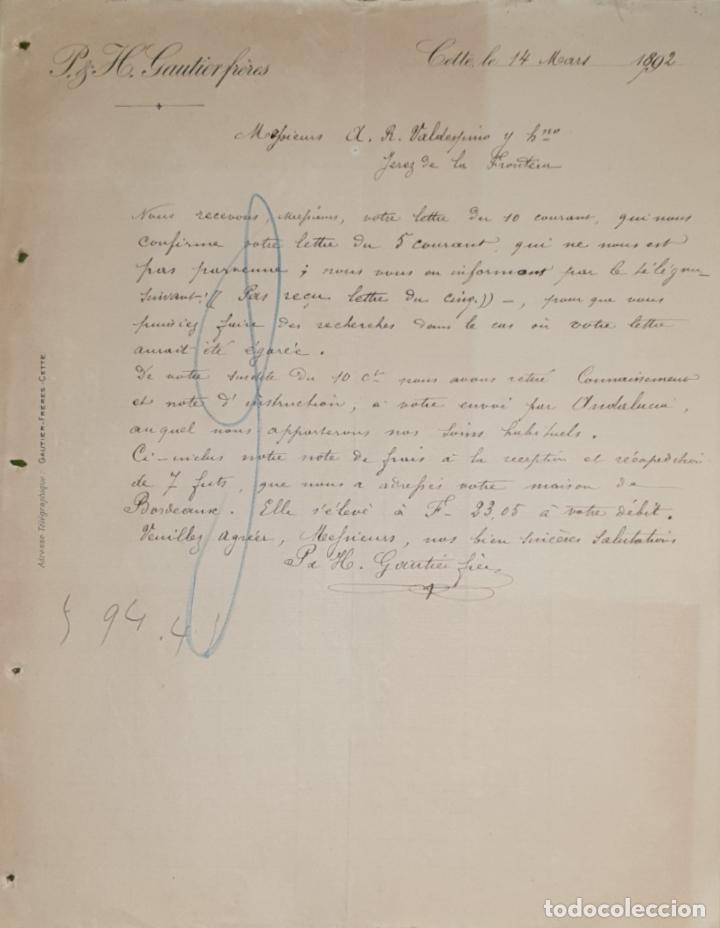 P. & H. Gautier frères
Cette, le 14 Mars 1892
Messieurs A. R. Valdespino y hno
Jerez de la Frontera
Nous recevons, Messieurs, votre lettre du 10 courant, qui nous
confirme votre lettre du 5 courant, qui ne nous est
pas parvenue ; nous vous en informant par le télégra.
suivant: (( Pas reçu lettre du cinq. )) –, pour que vous
puissiez faire des recherches dans le cas où votre lettre
aurait été égarée.
De votre susdite du 10 ct nous avons retiré Connaissement
et note d'instruction, a votre envoi par Andalucia,
auquel nous apporterons nos soins habituels.
Ci-inclus notre note de frais à la reception et réexpedition
de 7 futs, que nous a adressés votre maison de
Bordeaux. Elle s'élève à F- 23,05 à votre débit.
Veuillez Agréer, Messieurs, nos bien sincères Salutations
P & H. Gautier frères
94.4
Adresse Télégraphique : GAUTIER-FRÈRES-CETTE
todocoleccion.net